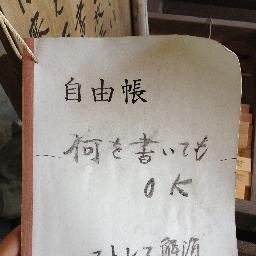 自由帳
何を書いても
OK
ストレス解消